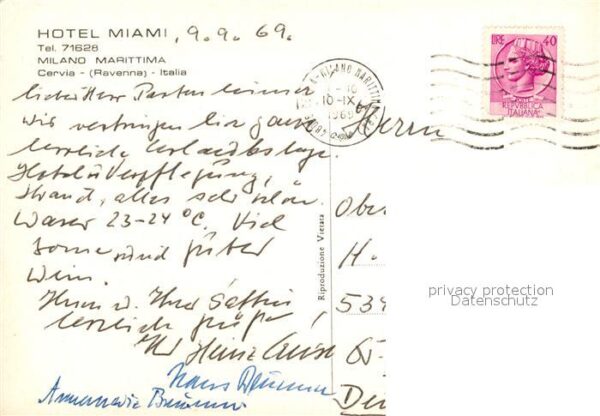 HOTEL MIAMI, 9.9.69.
Tel. 71628
MILANO MARITTIMA
Cervia - (Ravenna) - Italia
Lieber Herr
wir verbringen hier ganz
herrliche Urlaubstage.
Hotel u. Verpflegung,
Strand, alles sehr schön.
Wasser 23-24 °C. Viel
Sonne und guter
Wein.
Ihnen u. Ihrer Gattin
herzliche Grüße,
Ihr Heinz
Hans
Annemarie
LIRE 40
REPUBBLICA
ITALIANA
MILANO MARITTIMA
10-IX
1969
Herrn
Obe
H.
534
De
Riproduzione Vietata
privacy protection
Datenschutz